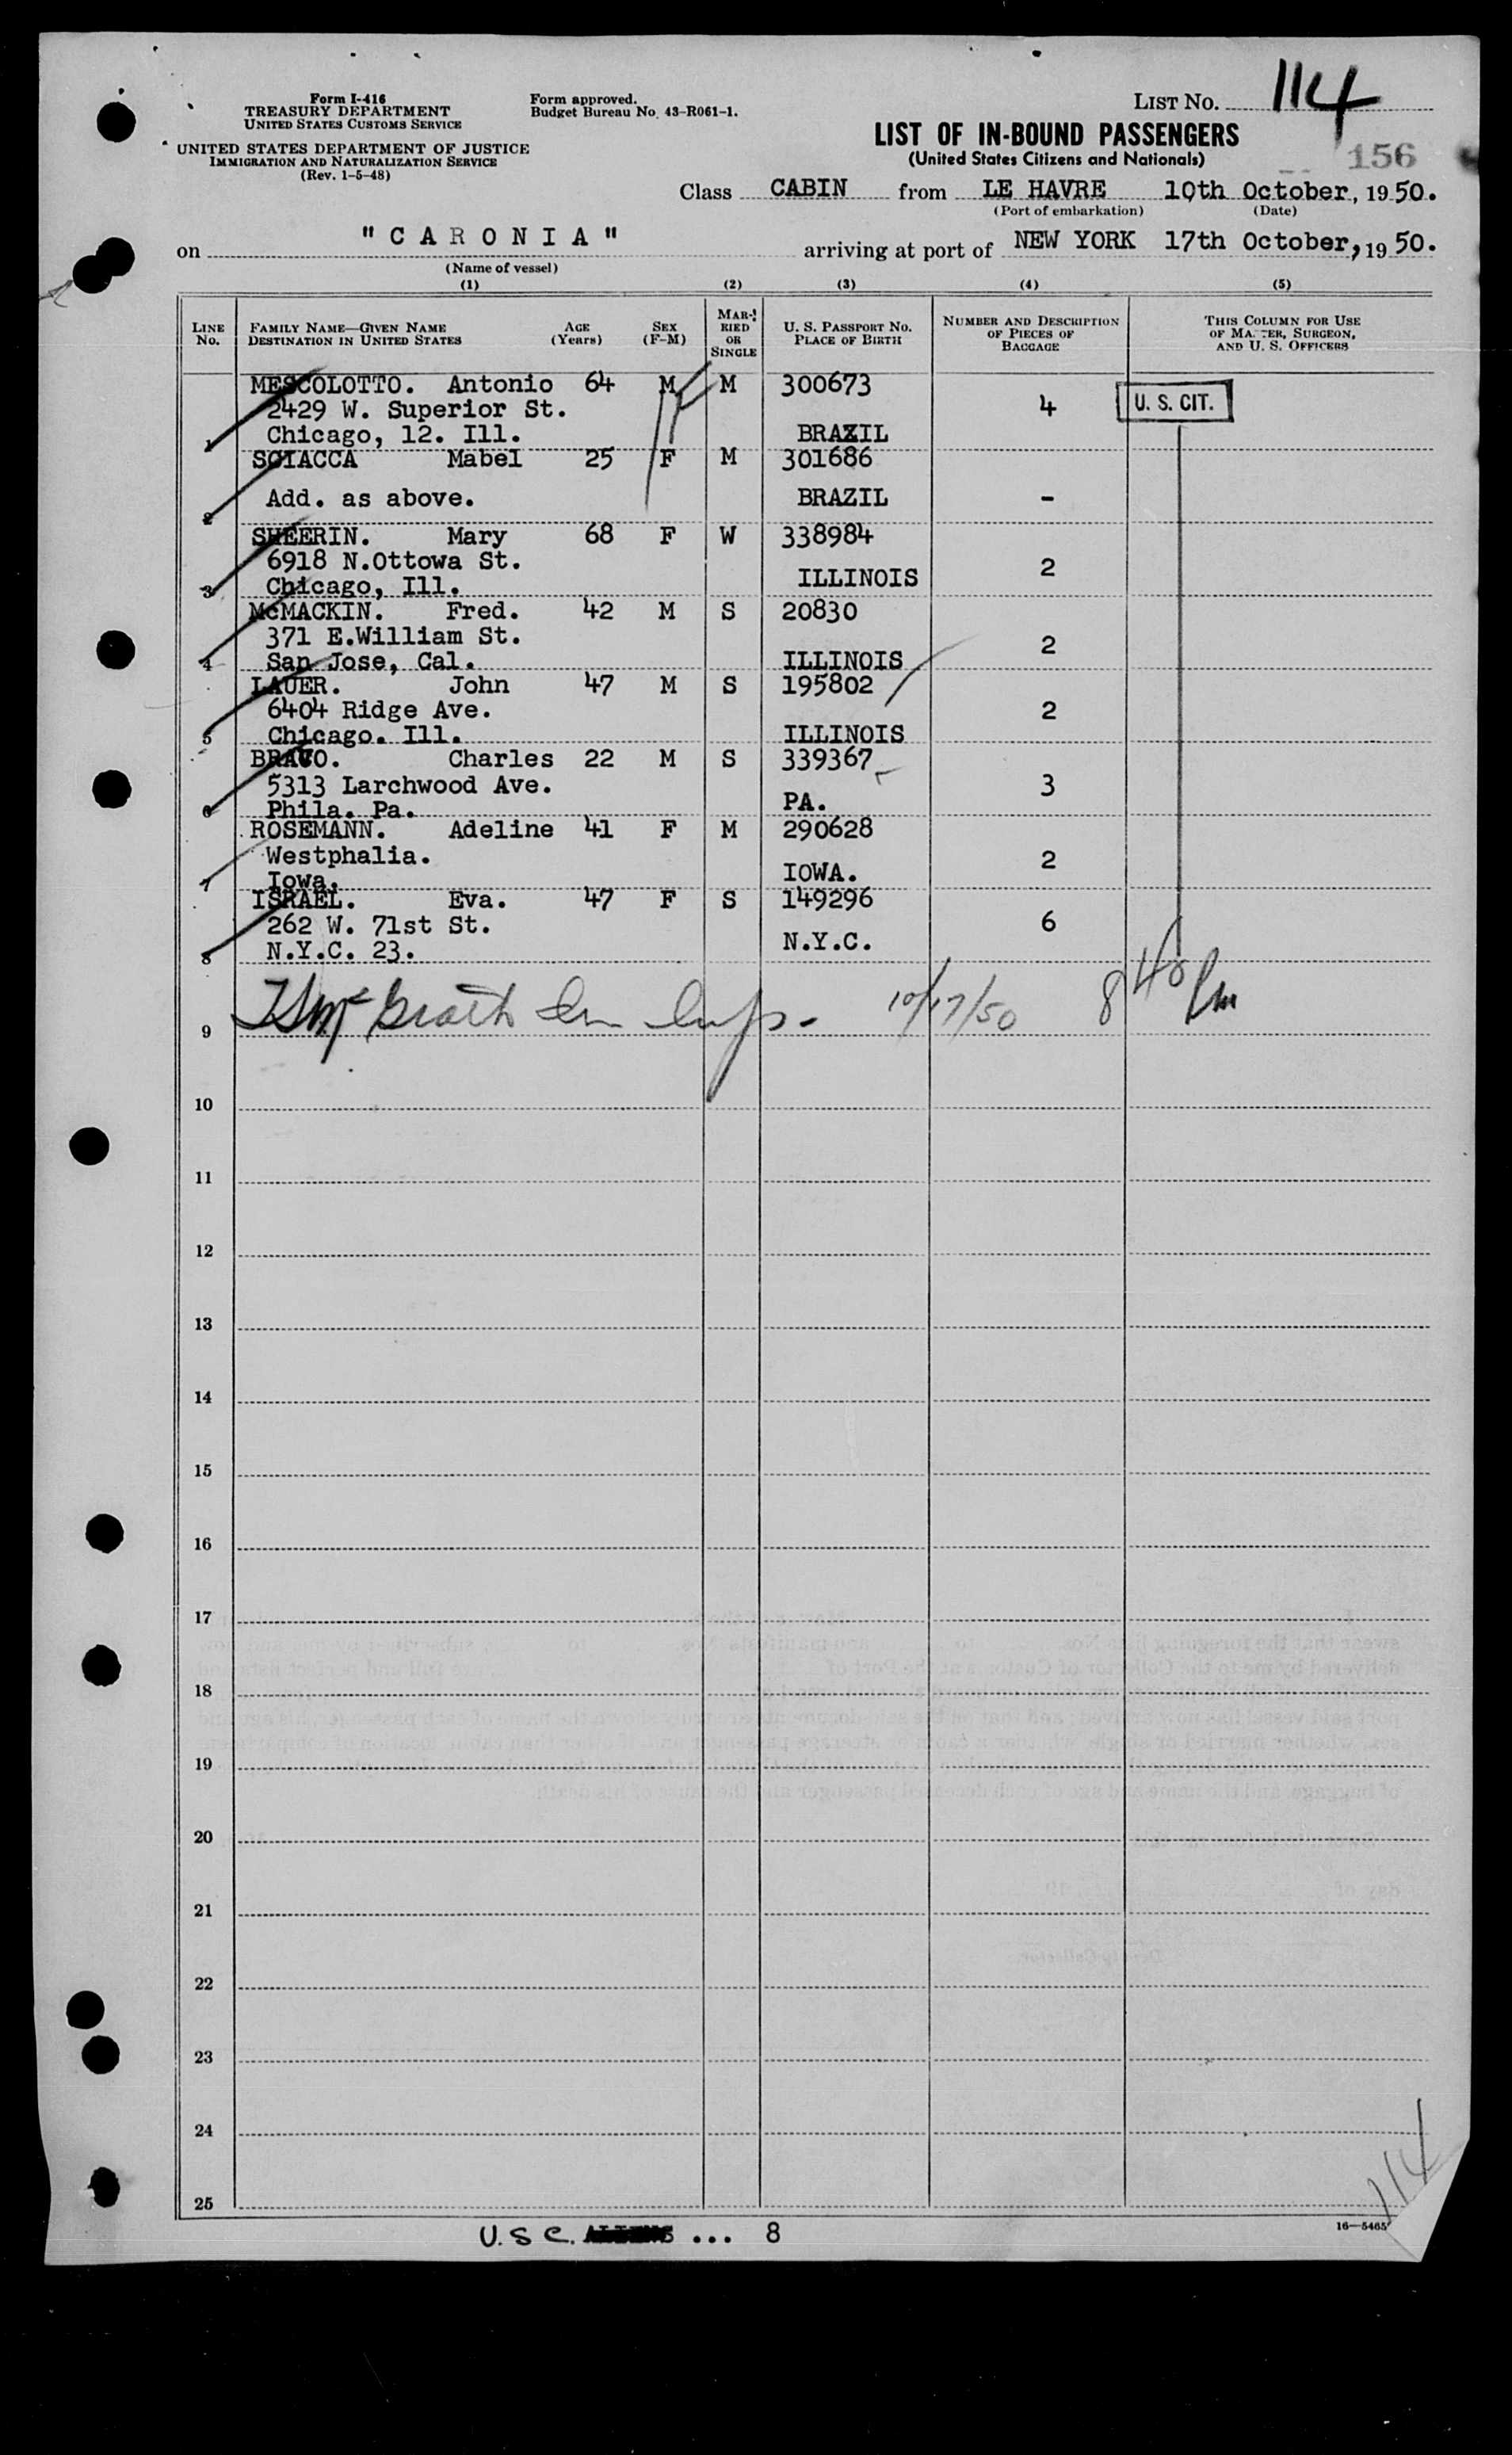 Form I-416
TREASURY DEPARTMENT
UNITED STATES CUSTOMS SERVICE
UNITED STATES DEPARTMENT OF JUSTICE
IMMIGRATION AND NATURALIZATION SERVICE
(Rev. 1-5-48)
Form approved.
Budget Bureau No. 43-R061-1.
LIST No. 114
LIST OF IN-BOUND PASSENGERS
(United States Citizens and Nationals)
156
Class CABIN from LE HAVRE 10th October, 1950.
(Port of embarkation) (Date)
on "CARONIA" arriving at port of NEW YORK 17th October, 1950.
(Name of vessel)
(1) (2) (3) (4) (5)
LINE No. FAMILY NAME—GIVEN NAME DESTINATION IN UNITED STATES AGE (Years) SEX (F-M) MARRIED OR SINGLE U. S. PASSPORT No. PLACE OF BIRTH NUMBER AND DESCRIPTION OF PIECES OF BAGGAGE THIS COLUMN FOR USE OF MASTER, SURGEON, AND U. S. OFFICERS
MESCOLOTTO. Antonio 64 M M 300673
2429 W. Superior St. 4 U. S. CIT.
1 Chicago, 12. Ill. BRAZIL
SCIACCA Mabel 25 F M 301686
2 Add. as above. BRAZIL -
SHEERIN. Mary 68 F W 338984
6918 N.Ottowa St. 2
3 Chicago, Ill. ILLINOIS
McMACKIN. Fred. 42 M S 20830
371 E.William St. 2
4 San Jose, Cal. ILLINOIS
LAUER. John 47 M S 195802
6404 Ridge Ave. 2
5 Chicago. Ill. ILLINOIS
BRAVO. Charles 22 M S 339367
5313 Larchwood Ave. 3
6 Phila. Pa. PA.
ROSEMANN. Adeline 41 F M 290628
Westphalia. 2
7 Iowa. IOWA.
ISRAEL. Eva. 47 F S 149296
262 W. 71st St. 6
8 N.Y.C. 23. N.Y.C.
9 McGrath Im Insp. 10/17/50 8 40 Pm
10
11
12
13
14
15
16
17
18
19
20
21
22
23
24
25
114
16—5465
U.S.C. ... 8